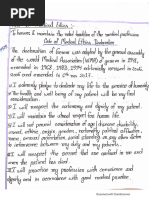 Medical Ethics :-
To honour & maintain the noble tradition of the medical profession
Code of Medical Ethics Declaration
The declaration of Geneva was adopted by the general assembly
of the world Medical Association (WMA) of geneva in 1948,
amended in 1968, 1983, 1994 editorially revised in 2005,
2006 and amended in Oct on 2017.
I solemnly pledge to dedicate my life to the service of humanity
the health and well being of my patient will be my first
consideration.
I will respect the autonomy and dignity of my patient.
I will maintain the utmost respect for human life.
I will not permit considerations of age, disease disability,
creed, ethnic origin, gender, nationality, political affiliation,
race, sexual orientation, social standing or any other
factor to intervene between my duty and my patient.
I will respect the secrets that are confided in me even
after the patient has died.
I will practise my profession with conscience and
dignity and in accordance with good medical practice.
Scanned with CamScanner